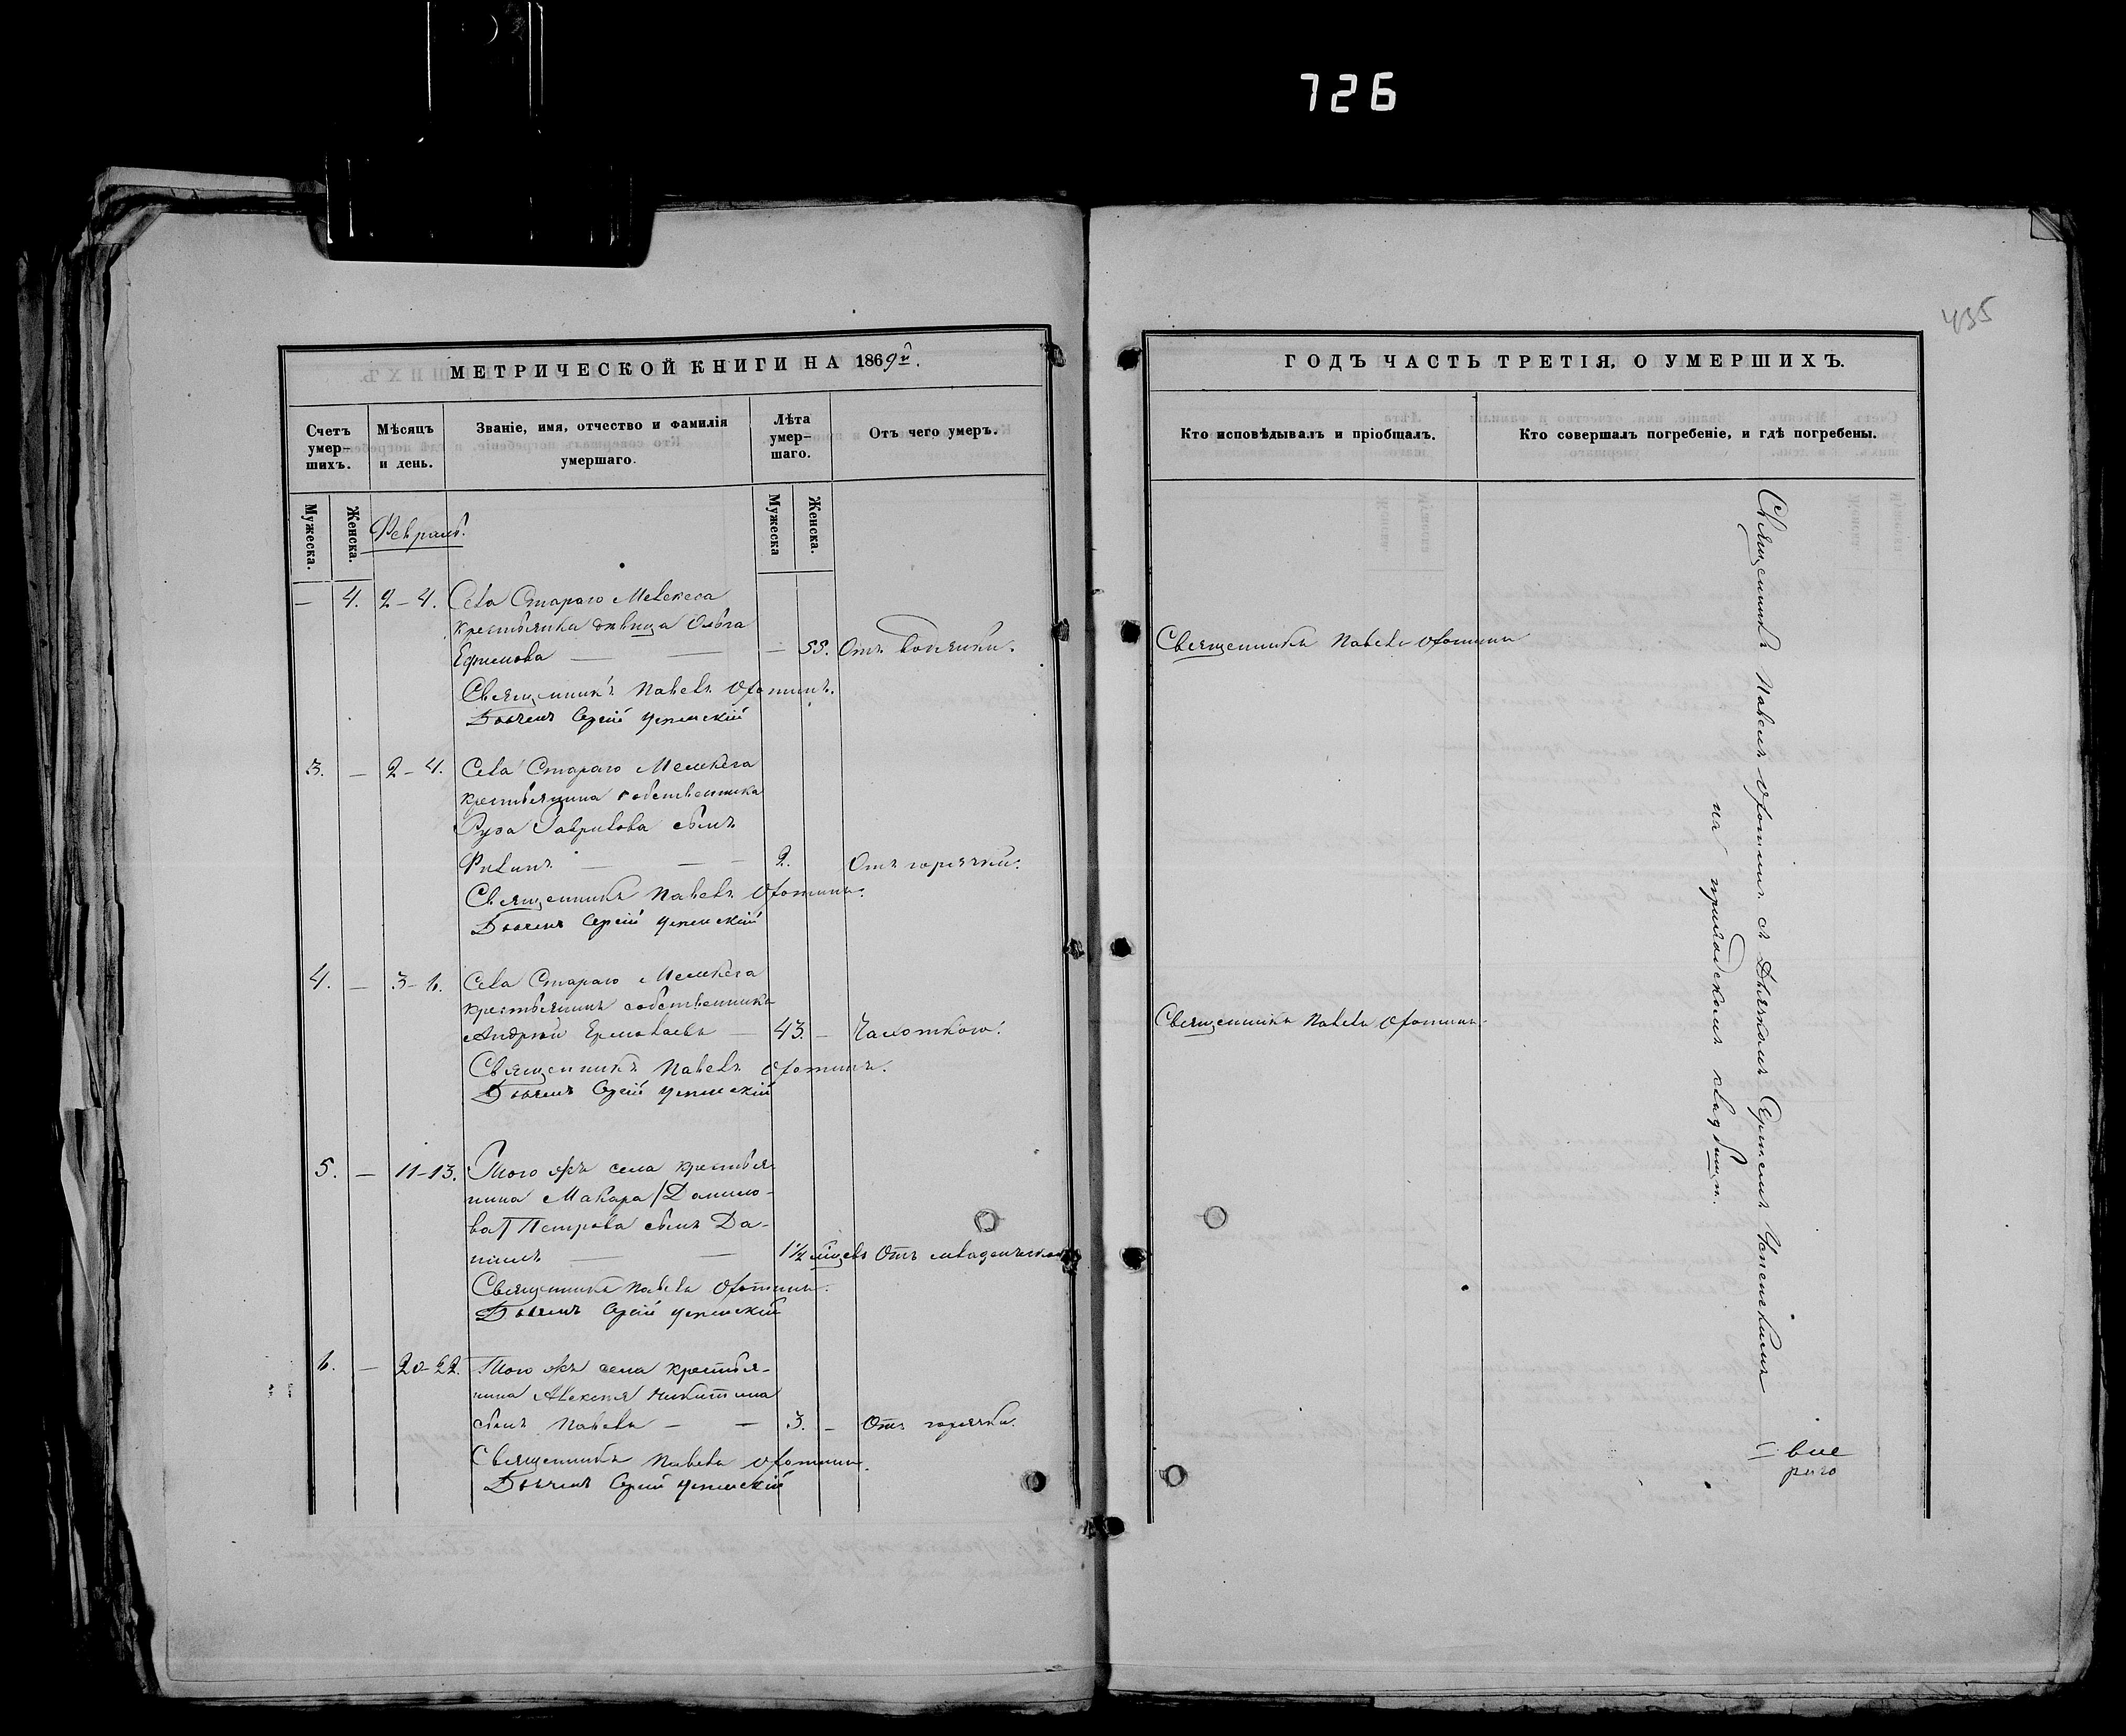 726
435
МЕТРИЧЕСКОЙ КНИГИ НА 1869й.
Счетъ умер-
шихъ.
Мѣсяцъ
и день.
Званіе, имя, отчество и фамилія
умершаго.
Лѣта
умер-
шаго.
Отъ чего умеръ.
Мужеска.
Женска.
Мужеска
Женска.
Февраль.
— 4. 2–4. Села Стараго Мелекеса
крестьянка дѣвица Ольга
Ефимова — — — 55. Отъ водянки.
Священникъ Павелъ Фотинъ.
Дьячекъ Сергій Успенскій
3. — 2–4. Села Стараго Мелекеса
крестьянина собственника
Гаврилова сынъ
— — 2. Отъ горячки.
Священникъ Павелъ Фотинъ.
Дьячекъ Сергій Успенскій
4. — 3–6. Села Стараго Мелекеса
крестьянинъ собственникъ
Андрей Ермолаевъ — 43. — Чахоткою.
Священникъ Павелъ Фотинъ.
Дьячекъ Сергій Успенскій
5. — 11–13. Того же села крестья-
нина Макара /Данило-
ва/ Петрова сынъ Да-
нiилъ — — 1½ мѣсцъ Отъ младенческой
Священникъ Павелъ Фотинъ.
Дьячекъ Сергій Успенскій
6. — 20–22. Того же села крестья-
нина Алексѣя Никитина
сынъ Павелъ — — 3. — Отъ горячки.
Священникъ Павелъ Фотинъ.
Дьячекъ Сергій Успенскій
ГОДЪ ЧАСТЬ ТРЕТІЯ, О УМЕРШИХЪ.
Кто исповѣдывалъ и пріобщалъ.
Кто совершалъ погребеніе, и гдѣ погребены.
Священникъ Павелъ Фотинъ
Священникъ Павелъ Фотинъ.
Священникъ Павелъ Фотинъ съ Дьячкомъ Сергіемъ Успенскимъ
на приходскомъ кладбищѣ.